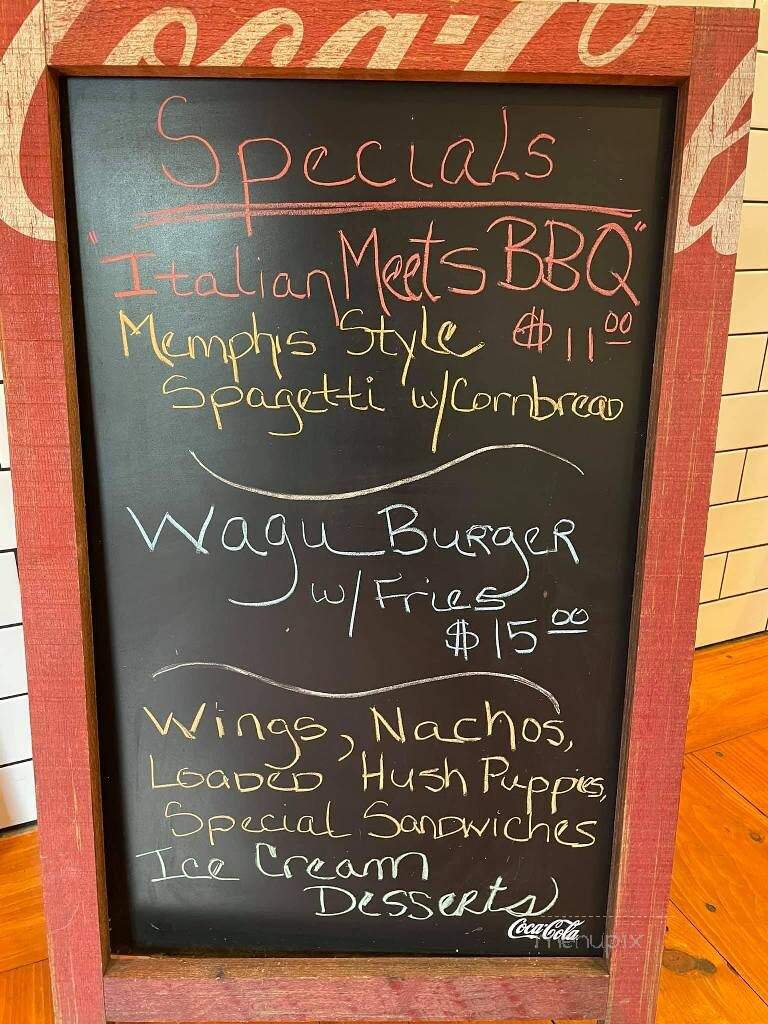 Coca-Cola
Specials
"Italian Meets BBQ"
Memphis Style $11.00
Spagetti w/Cornbread
Wagu Burger
w/Fries
$15.00
Wings, Nachos,
Loaded Hush Puppies,
Special Sandwiches
Ice Cream
Desserts
Coca-Cola
menupix